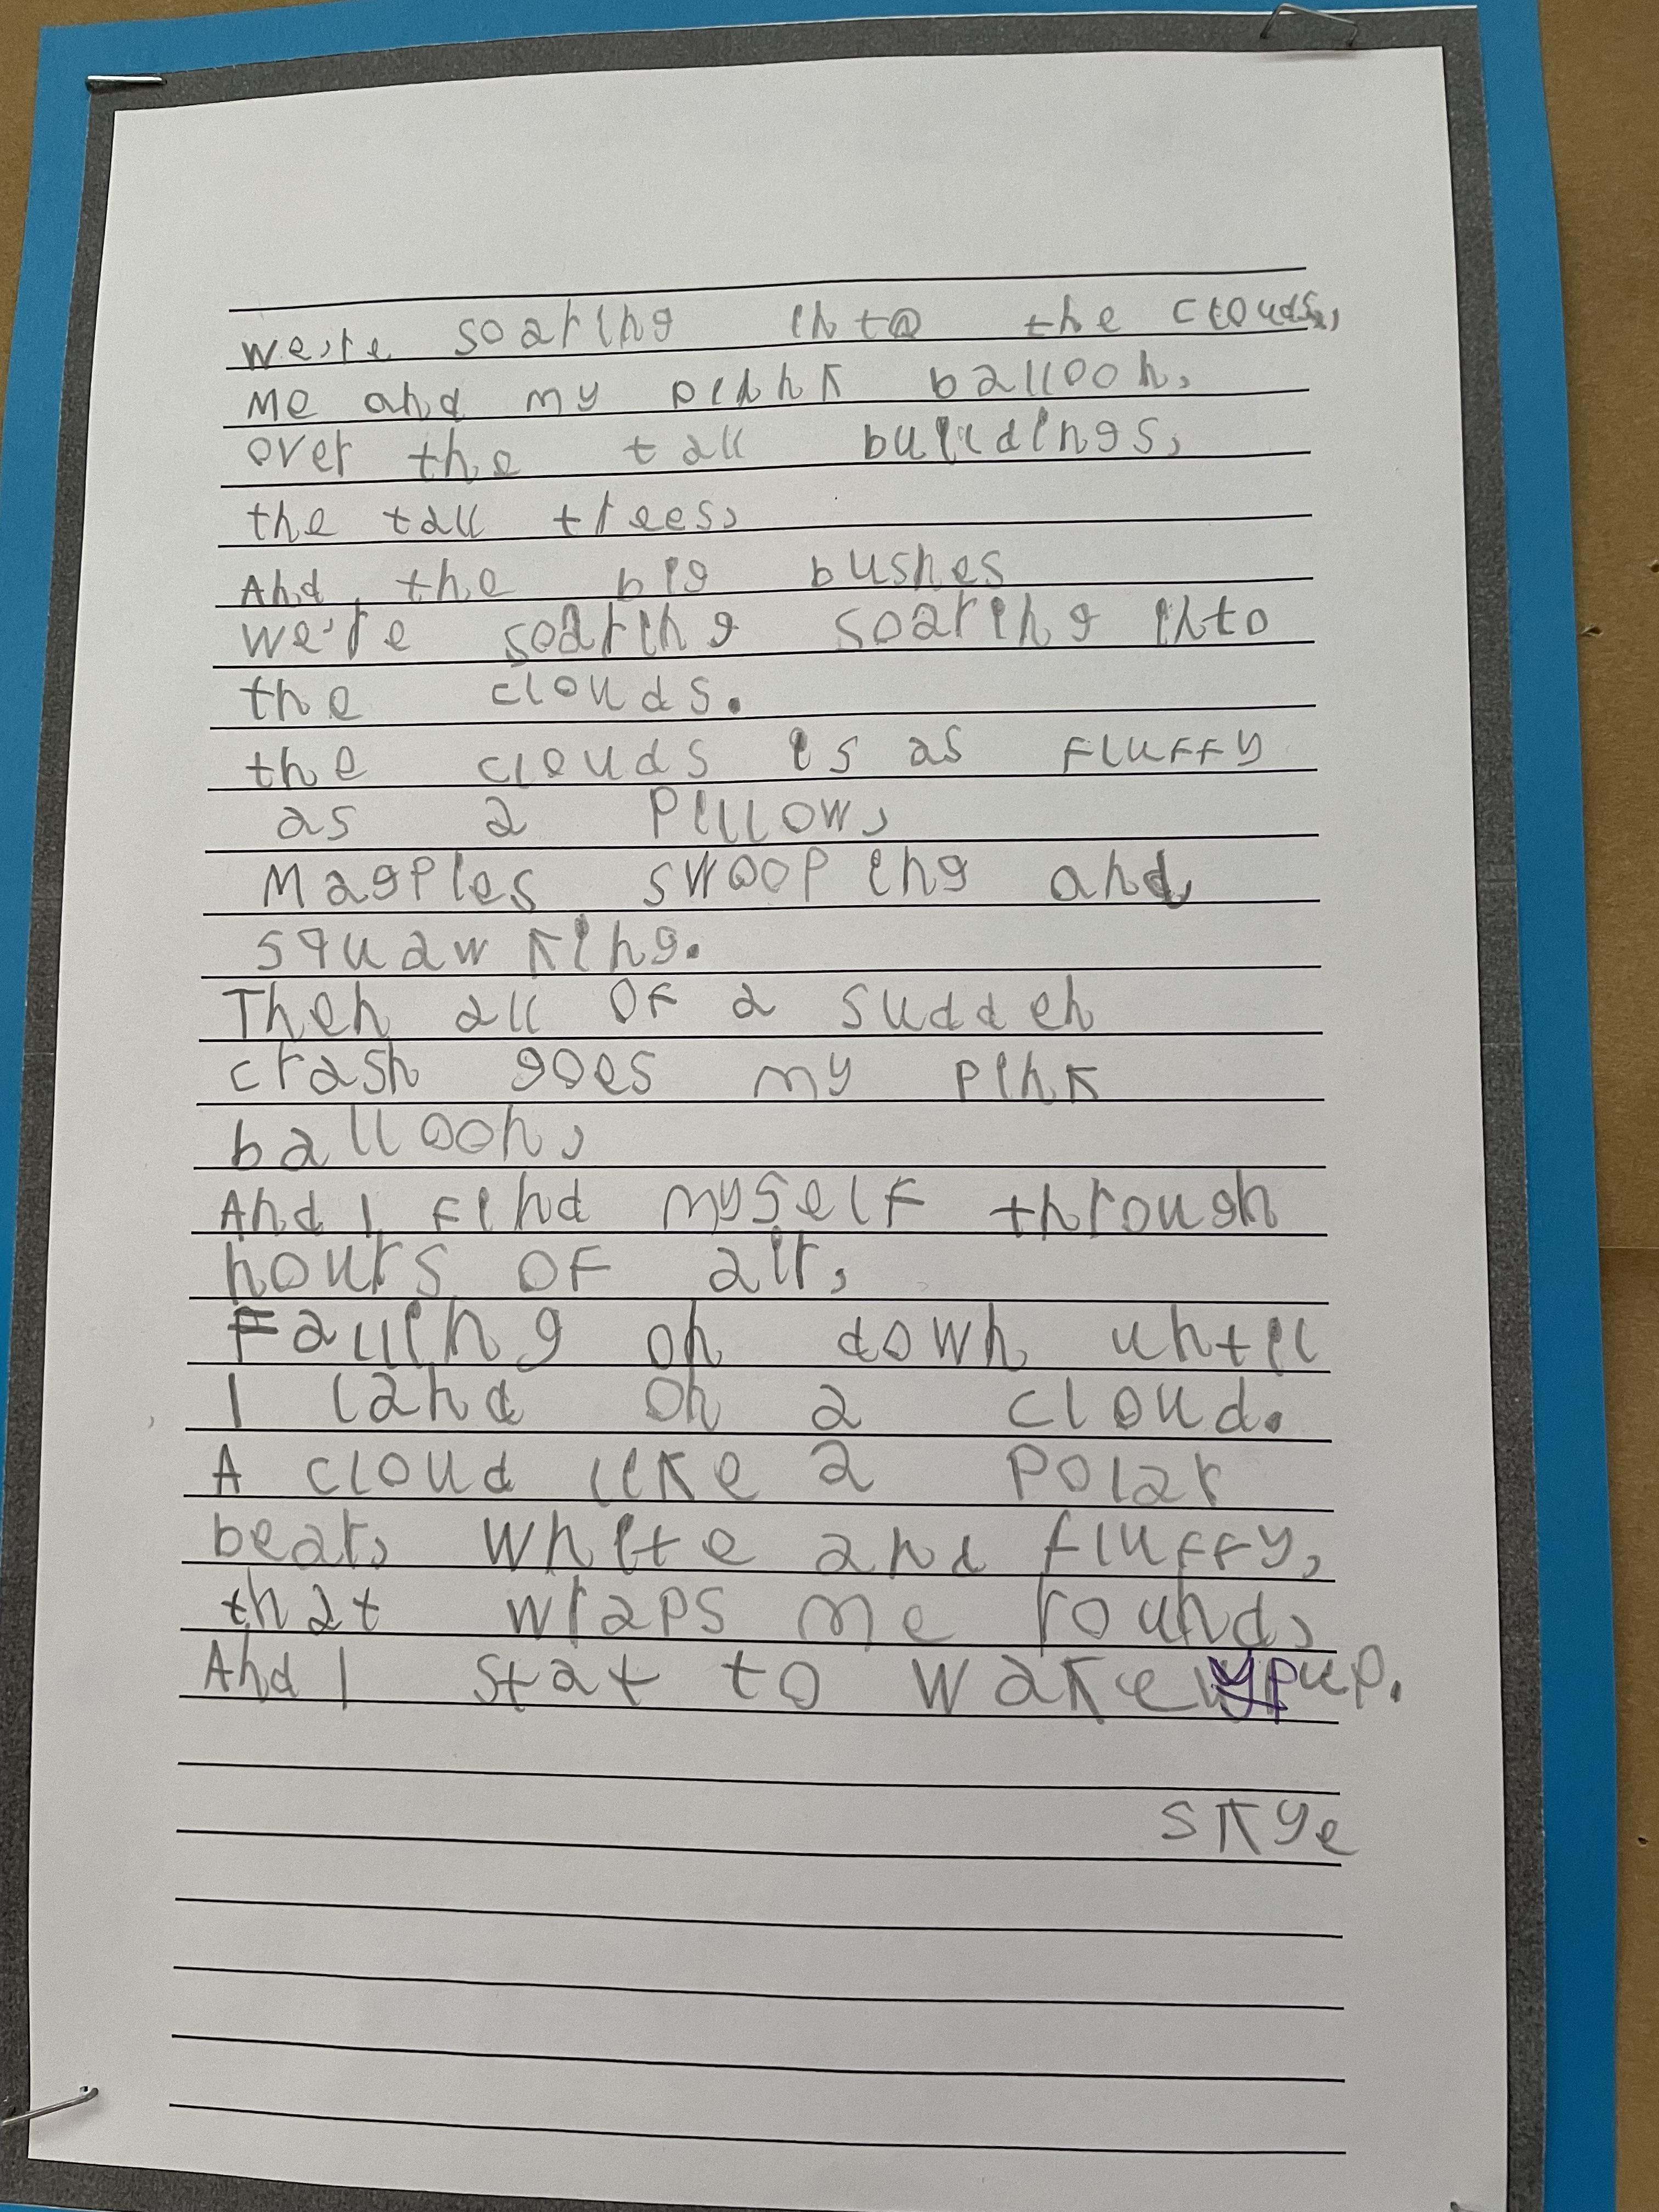 we're soaring into the clouds,
me and my pink balloon,
over the tall buildings,
the tall trees,
And the big bushes
we're soaring soaring into
the clouds.
the clouds is as fluffy
as a pillow,
Magpies swooping and
squawking.
Then all of a sudden
crash goes my pink
balloon,
And I find myself through
hours of air,
Falling on down until
I land on a cloud.
A cloud like a polar
bear, white and fluffy,
that wraps me round,
And I stat to wake up.
skye